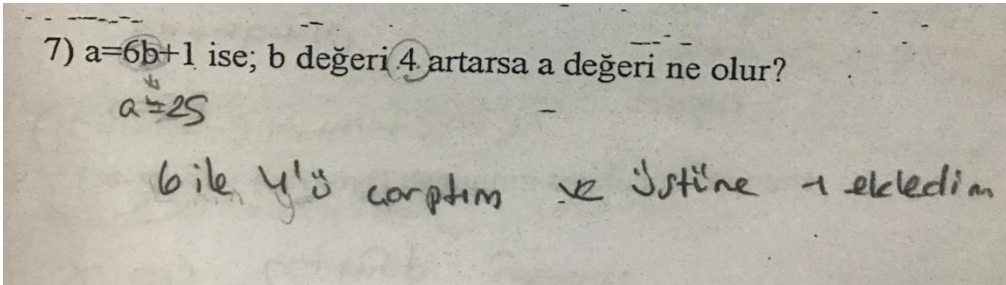 7) a=6b+1 ise; b değeri 4 artarsa a değeri ne olur?
a=25
6 ile 4'ü çarptım ve üstüne 1 ekledim